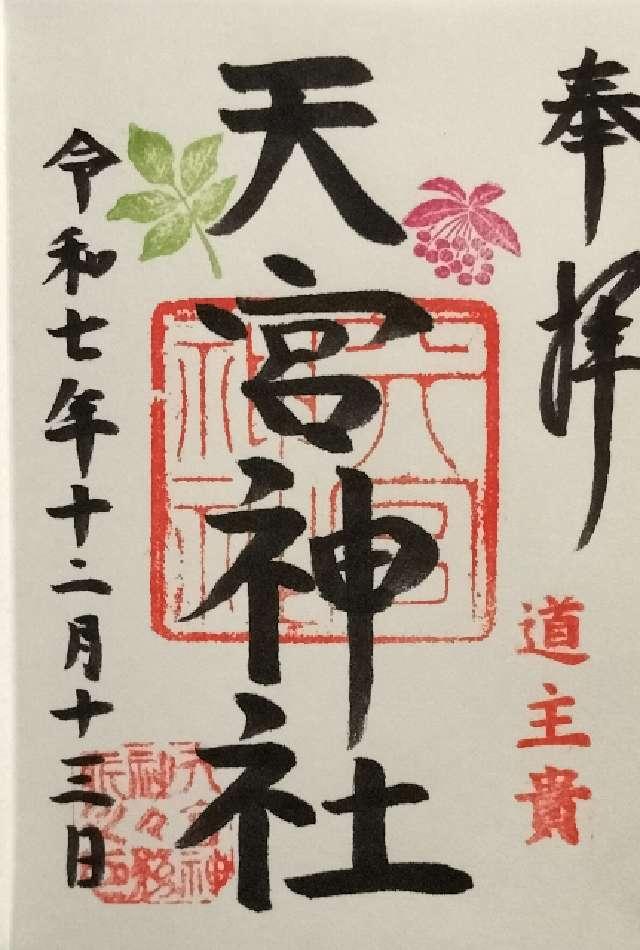 奉拝
道主貴
天宮神社
令和七年十二月十三日
天宮神社